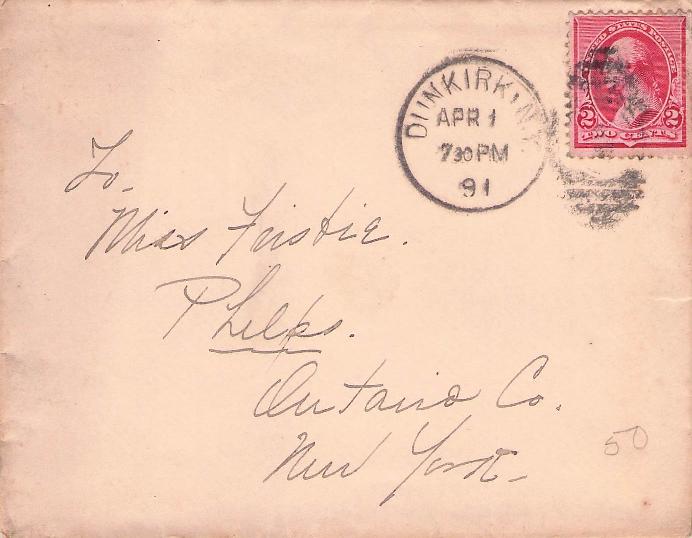 UNITED STATES POSTAGE
2 2
TWO CENTS
DUNKIRK, N.Y.
APR 1
730PM
91
To,
Miss
Phelps.
Ontario Co.
New York-
50